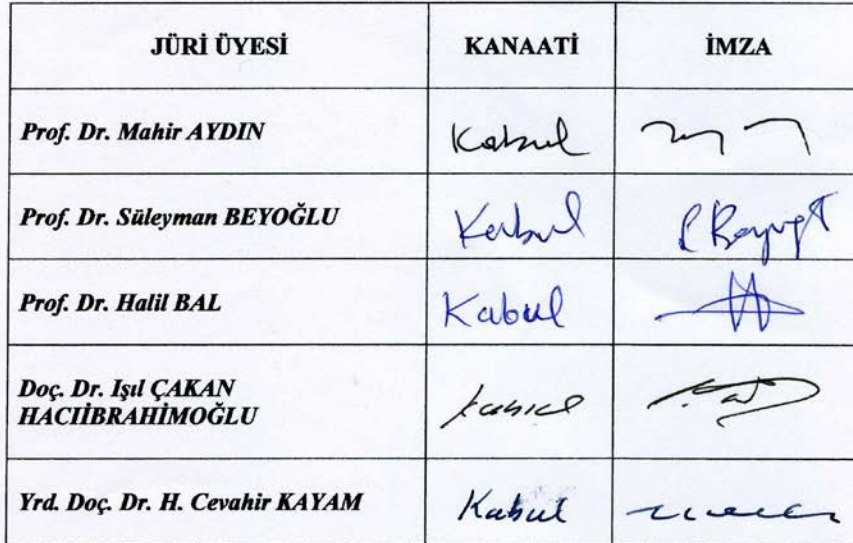 JÜRİ ÜYESİ KANAATİ İMZA
Prof. Dr. Mahir AYDIN Kabul
Prof. Dr. Süleyman BEYOĞLU Kabul
Prof. Dr. Halil BAL Kabul
Doç. Dr. Işıl ÇAKAN
HACIİBRAHİMOĞLU Kabul
Yrd. Doç. Dr. H. Cevahir KAYAM Kabul